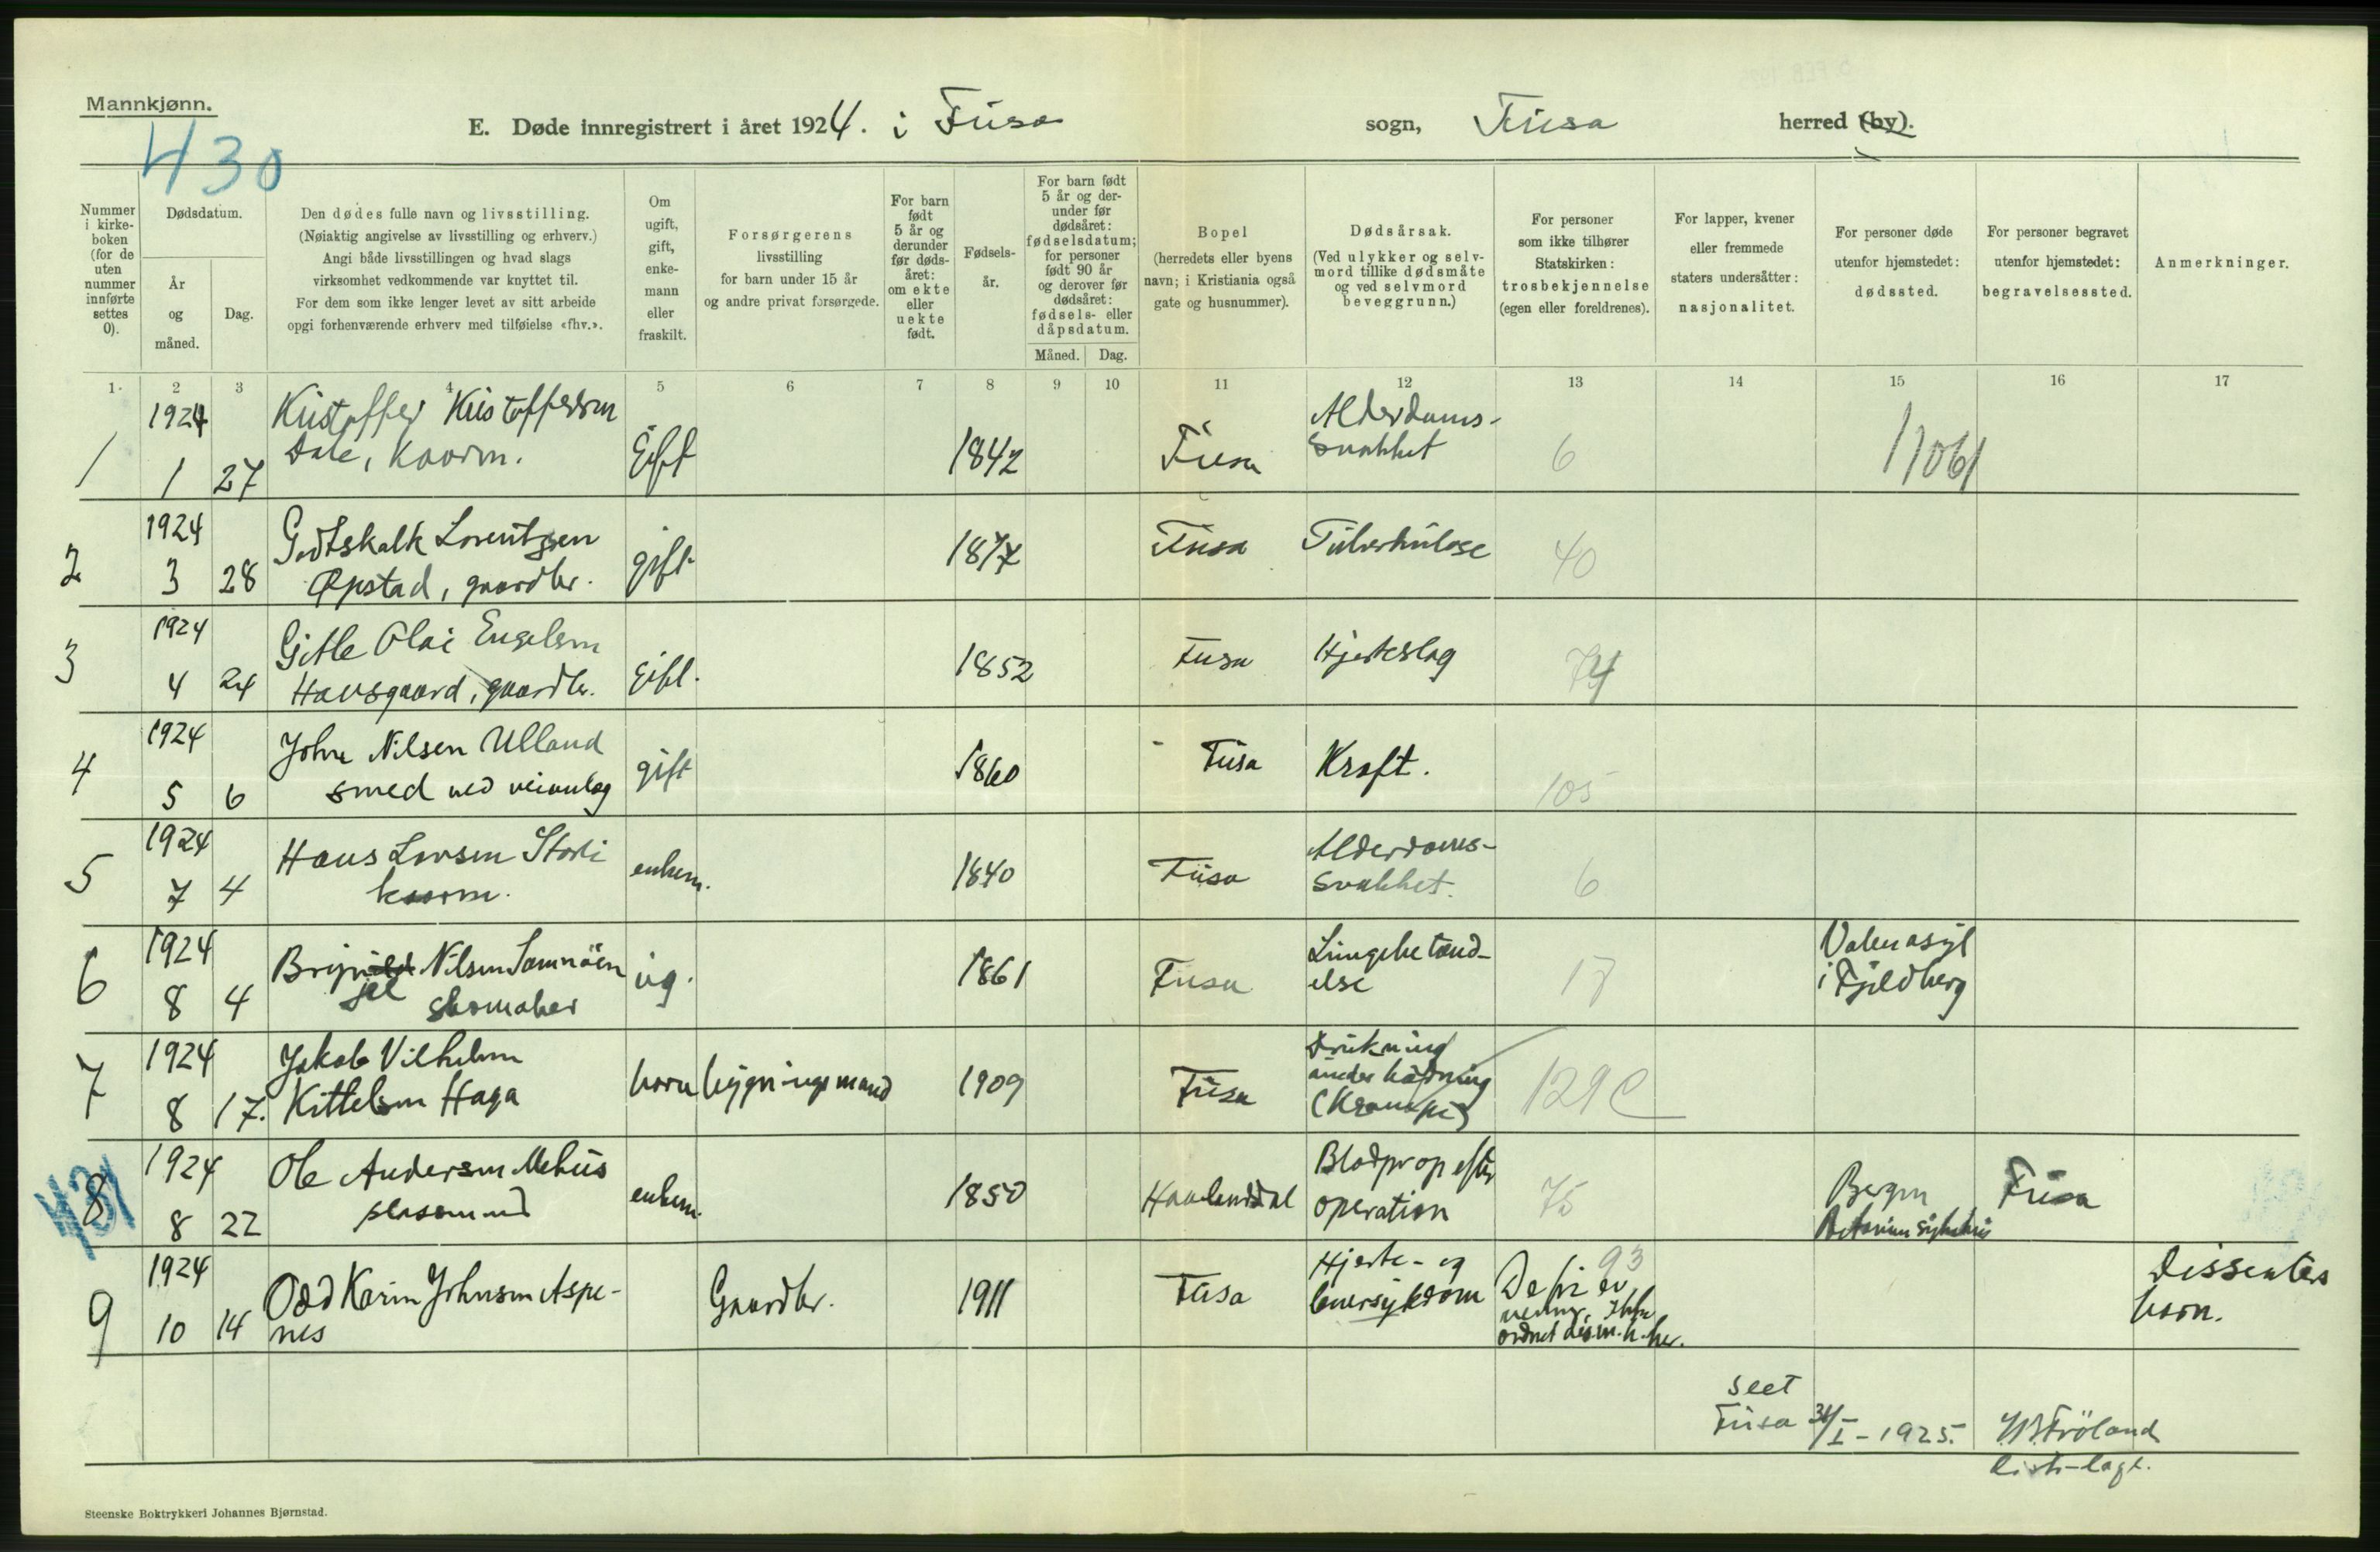 Mannkjønn.
E. Døde innregistrert i året 1924. i Fusa sogn, Fusa herred (by).
430
Nummer i kirke- boken (for de uten nummer innførte settes 0).
Dødsdatum.
År og måned.
Dag.
Den dødes fulle navn og livsstilling.
(Nøiaktig angivelse av livsstilling og erhverv.)
Angi både livsstillingen og hvad slags
virksomhet vedkommende var knyttet til.
For dem som ikke lenger levet av sitt arbeide
opgi forhenværende erhverv med tilføielse «fhv.».
Om ugift, gift, enke- mann eller fraskilt.
Forsørgerens
livsstilling
for barn under 15 år
og andre privat forsørgede.
For barn født 5 år og derunder før døds- året: om ekte eller uekte født.
Fødsels- år.
For barn født 5 år og der- under før dødsåret: fødselsdatum; for personer født 90 år og derover før dødsåret: fødsels- eller dåpsdatum.
Måned. Dag.
Bopel
(herredets eller byens
navn; i Kristiania også
gate og husnummer).
Dødsårsak.
(Ved ulykker og selv-
mord tillike dødsmåte
og ved selvmord
beveggrunn.)
For personer
som ikke tilhører
Statskirken:
trosbekjennelse
(egen eller foreldrenes).
For lapper, kvener
eller fremmede
staters undersåtter:
nasjonalitet.
For personer døde
utenfor hjemstedet:
dødssted.
For personer begravet
utenfor hjemstedet:
begravelsessted.
Anmerkninger.
1 2 3 4 5 6 7 8 9 10 11 12 13 14 15 16 17
1 1924 1 27 Kristoffer Kristoffersen
Dale, kaarm. Gift 1842 Fusa Alderdoms-
svakhet 6 11061
2 1924 3 28 Godtskalk Lorentzen
Opstad, gaardbr. gift 1877 Fusa Tuberkulose 40
3 1924 4 24 Gitle Olai Engelsen
Havsgaard, gaardbr. Gift. 1852 Fusa Hjerteslag 74
4 1924 5 6 John Nilsen Ulland
smed ved veianlæg gift 1860 Fusa Kræft. 105
5 1924 7 4 Hans Larsen Storli
kaarm. enkem. 1840 Fusa Alderdoms-
svakhet. 6
6 1924 8 4 Nilsen Samnöen
skomaker ug. 1861 Fusa Lungebetænd-
else 17 Valenasyl
i Fjeldberg
7 1924 8 17. Jakob Vilhelm
Kittelsen Haga barn bygningsmand 1909 Fusa Drukning
under badning
(Krampe) 129 C
8 431 1924 8 22 Ole Andersen Mehus
plassmand enkem. 1850 Haalandsdal Blodprop efter
operation 75 Bergen
sykehus Fusa
9 1924 10 14 Odd Karin Johnsen Aspe-
nes Gaardbr. 1911 Fusa Hjerte- og
sykdom 93 De fri ev
venner. Ikke
ordnet Dissenter
barn.
Seet
Fusa 31/I - 1925. Fröland
Steenske Boktrykkeri Johannes Bjørnstad.